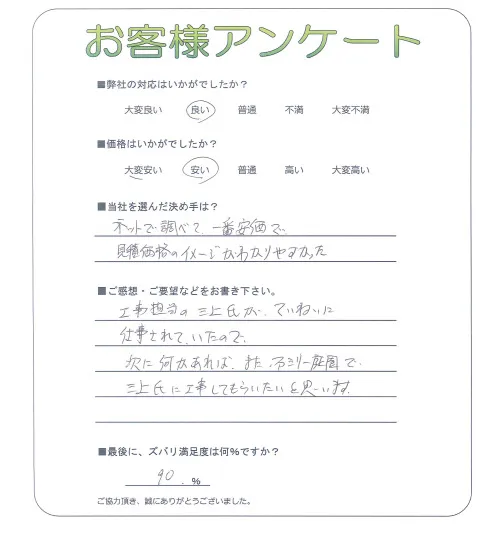 お客様アンケート
■弊社の対応はいかがでしたか?
大変良い 良い 普通 不満 大変不満
■価格はいかがでしたか?
大変安い 安い 普通 高い 大変高い
■当社を選んだ決め手は?
ネットで調べて、一番安価で、
見積価格のイメージがわかりやすかった
■ご感想・ご要望などをお書き下さい。
工事担当の三上氏が、ていねいに
仕事されていたので、
次に何かあれば、また、ファミリー庭園で、
三上氏に工事してもらいたいと思います。
■最後に、ズバリ満足度は何%ですか?
90.%
ご協力頂き、誠にありがとうございました。